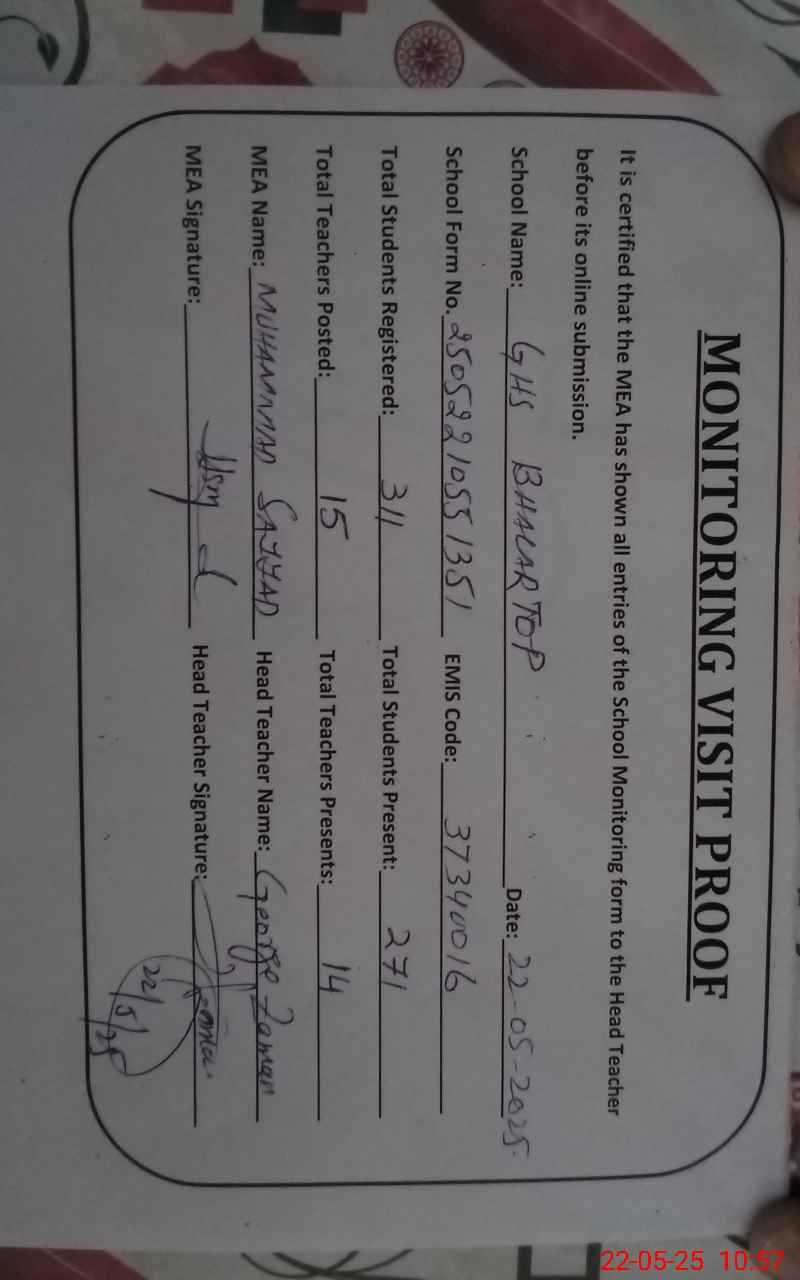 MONITORING VISIT PROOF
It is certified that the MEA has shown all entries of the School Monitoring form to the Head Teacher
before its online submission.
School Name: GHS BHALAR TOP Date: 22-05-2025.
School Form No. 25052210551351 EMIS Code: 37340016
Total Students Registered: 311 Total Students Present: 271
Total Teachers Posted: 15 Total Teachers Presents: 14
MEA Name: MUHAMMAD SAJJAD Head Teacher Name: George Zaman
MEA Signature: Head Teacher Signature:
22/5/25
22-05-25 10:57